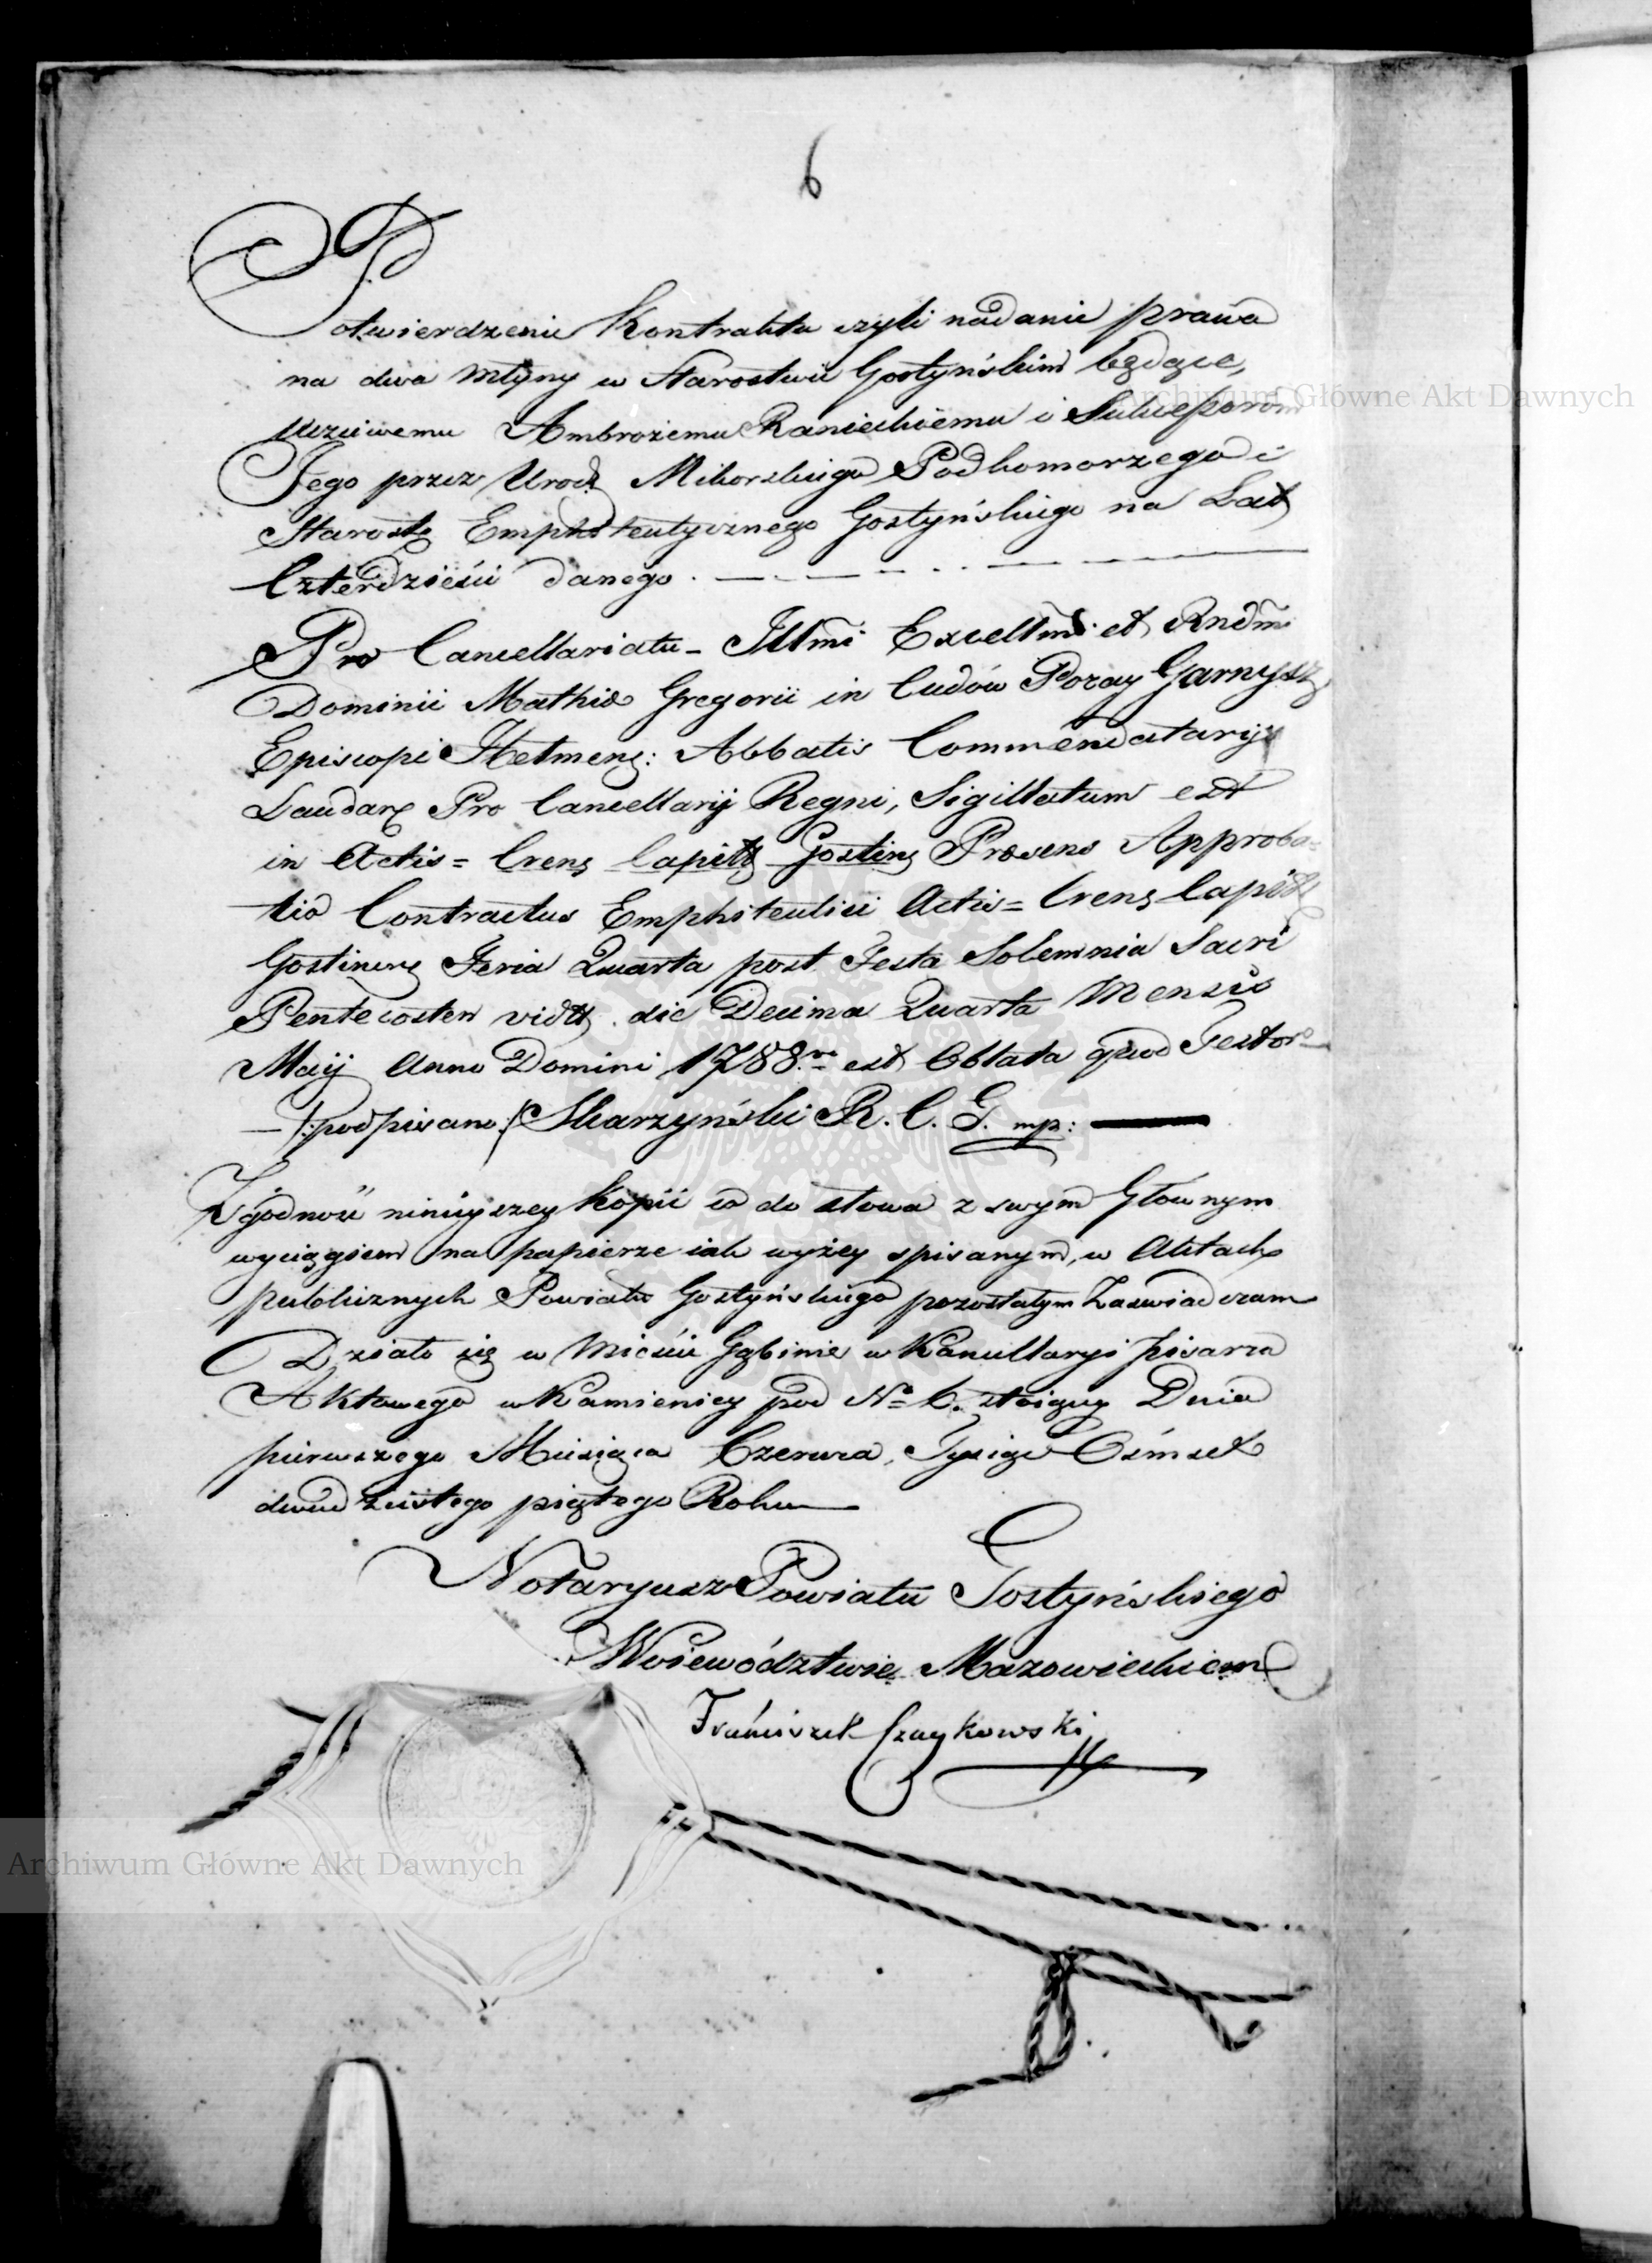 6
Potwierdzenie Kontraktu czyli nadanie prawa
na dwa Młyny w Starostwie Gostyńskim będące,
Uczciwemu Ambrożemu Ranieckiemu i Sukcessorom
Jego przez Urodz. Mikorskiego Podkomorzego i
Starostę Emphiteutycznego Gostyńskiego na Lat
Czterdzieści danego.
Pro Cancellariatu Illmi Excellmi et Rndmi
Dominii Mathiæ Gregorii in Cudów Poray Garnysz,
Episcopi Helmens: Abbatis Commendatarij
Pro Cancellarij Regni, Sigillatum est
in Actis = Crens Capitl Gostins Præsens Approba=
tio Contractus Emphiteutici Actis = Crens Capitl
Gostinens Feria Quarta post Festa Solemnia Sacri
Pentecosten vidtt. die Decima Quarta Mensis
Maij Anno Domini 1788. est Oblata quod Testor
/:podpisano:/ Skarzyński R. C. G. mp:
Zgodność ninieyszey Kopii co do słowa z swym Głównym
wyciągiem na papierze iak wyżey spisanym, w Aktach
publicznych Powiatu Gostyńskiego pozostałym Zaswiadczam
Działo się w Mieście Gąbinie w Kancellaryi pisarza
Aktowego w Kamienicy pod No 6. stoiącey Dnia
pierwszego Miesiąca Czerwca, Tysiąc Ośmset
dwudziestego piątego Roku
Notaryusz Powiatu Gostyńskiego
Woiewództwie Mazowieckiem
Franciszek Czaykowski
Archiwum Główne Akt Dawnych
Archiwum Główne Akt Dawnych